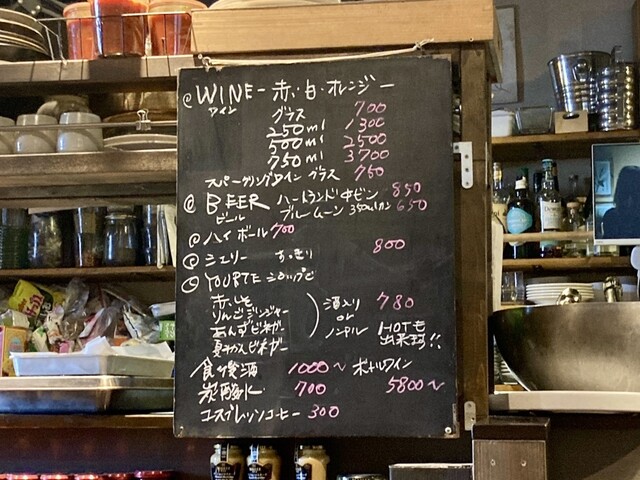 @ WINE - 赤・白・オレンジー
ワイン グラス 700
250ml 1300
500ml 2500
750ml 3700
スパークリングワイン グラス 750
@ BEER ハートランド中ビン 850
ビール ブルームーン 350ml カン 650
@ ハイボール 700
@ シェリー すっきり 800
シロップ
赤しそ
りんごジンジャー
あんずビネガー
夏みかんビネガー
酒入り or ノンアル 780
HOTも出来ます!!
食後酒 1000〜 ボトルワイン
炭酸水 700 5800〜
エスプレッソコーヒー 300